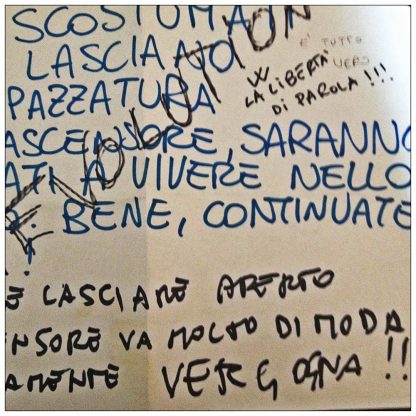 SCOSTUMATI
LASCIANO
PAZZATURA
ASCENSORE, SARANNO
ATI A VIVERE NELLO
BENE, CONTINUATE
!
REVOLUTION
E' TUTTO
VERO
W
LA LIBERTÀ
DI PAROLA !!!
E LASCIARE APERTO
NSORE VA MOLTO DI MODA
AMENTE VERGOGNA!!